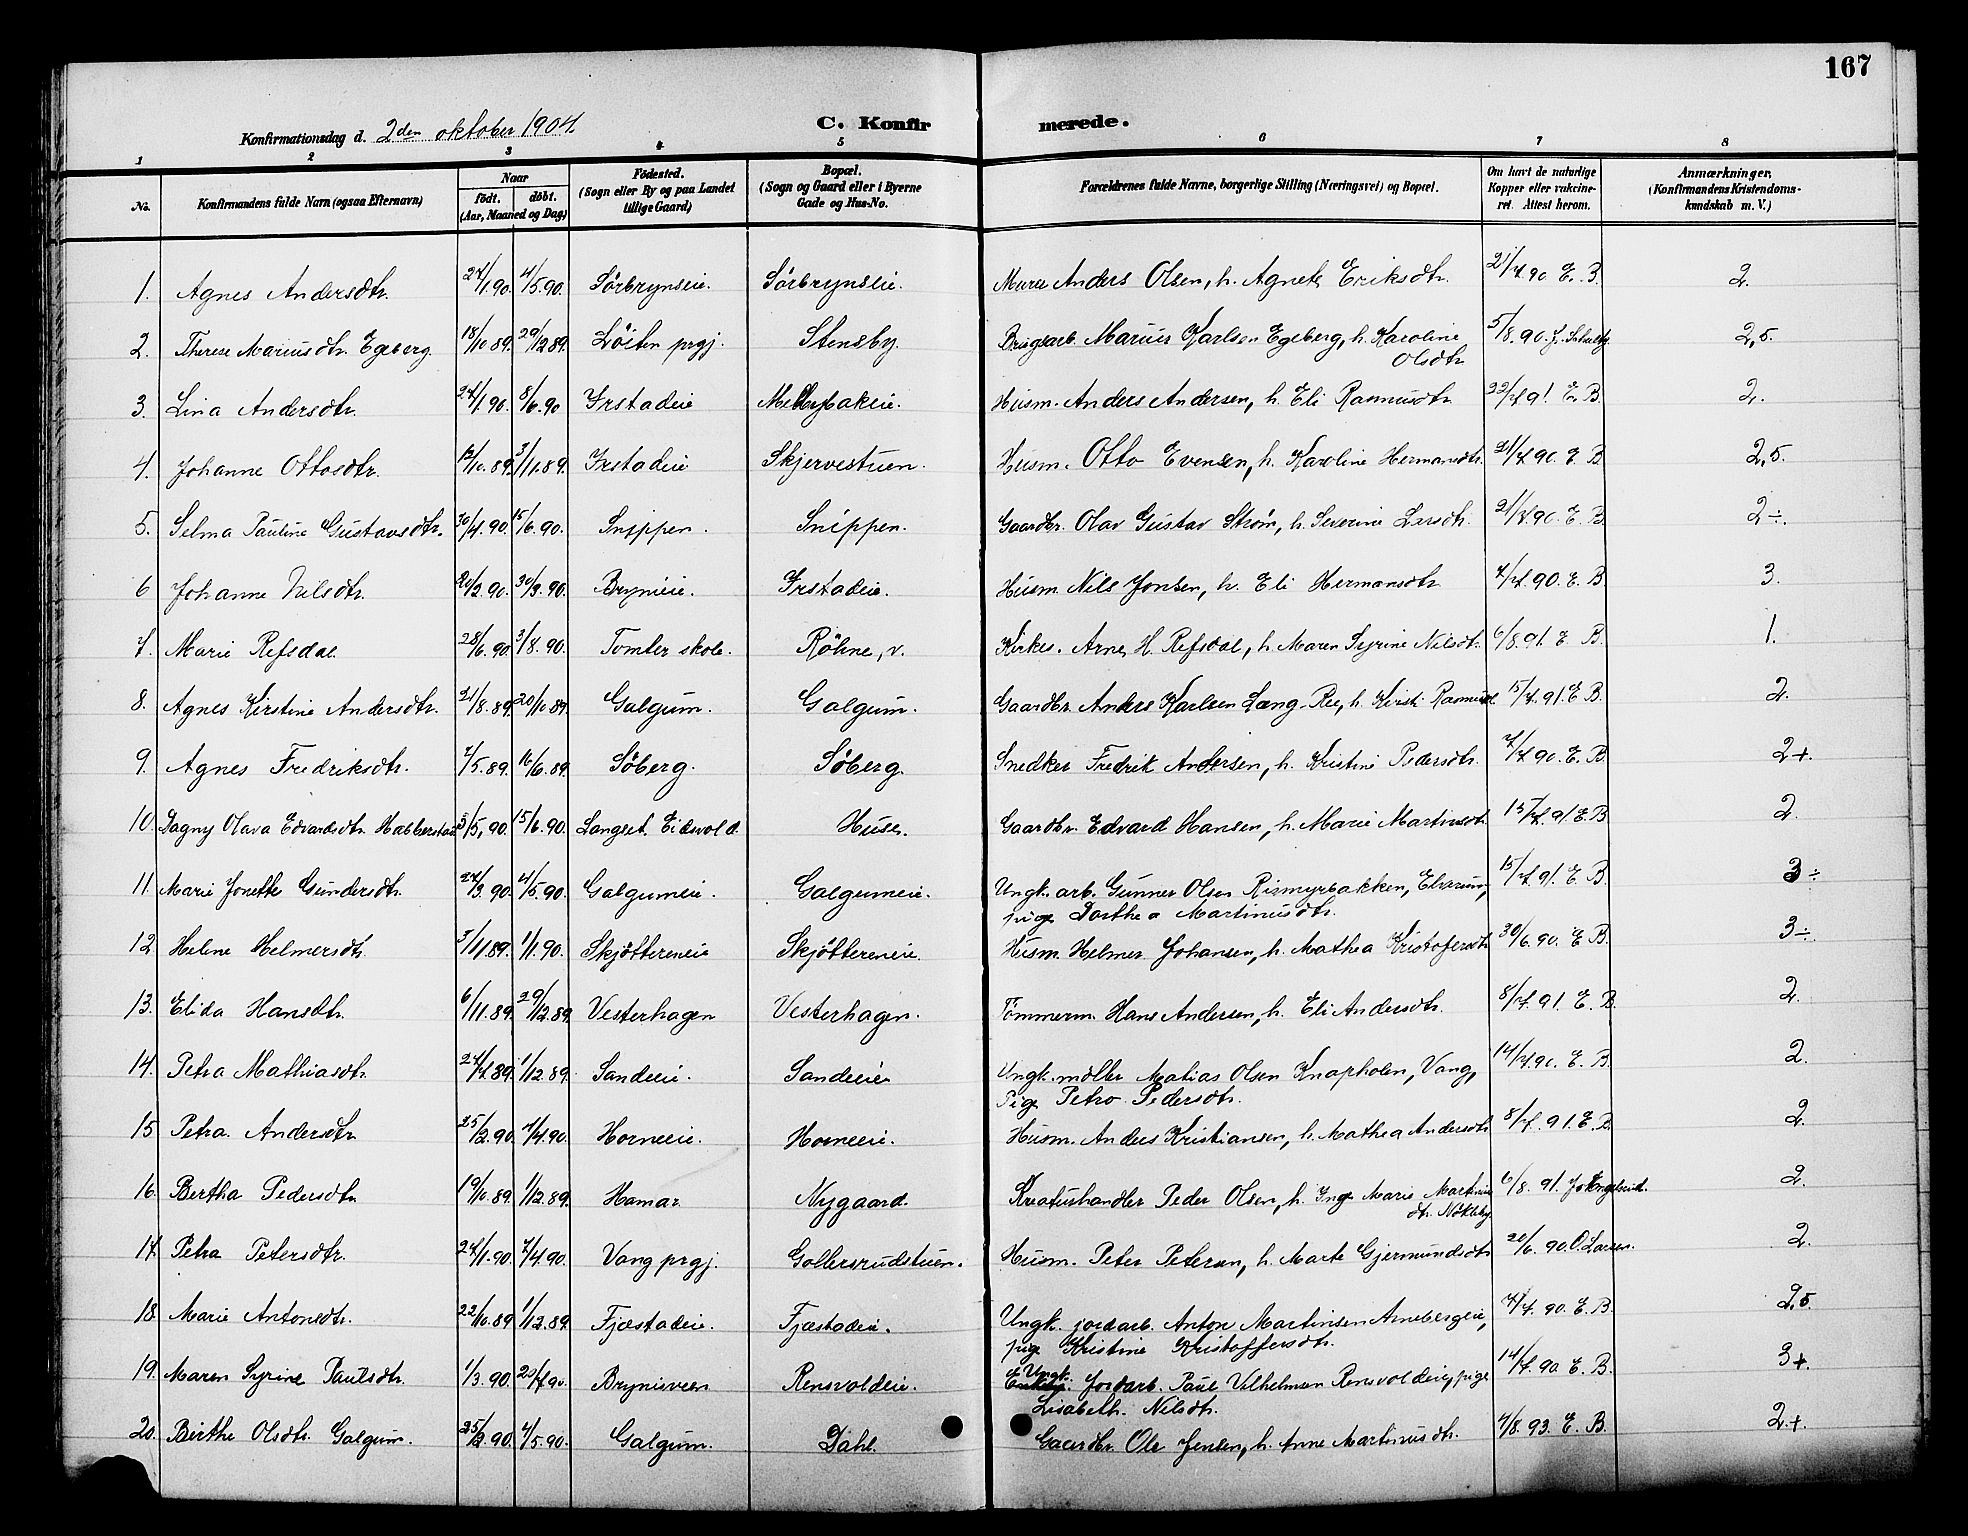 167
Konfirmationsdag d. 2den oktober 1904.
C. Konfirmerede.
1 2 3 4 5 6 7 8
No. Konfirmandens fulde Navn (ogsaa Efternavn) Naar født. døbt. (Aar, Maaned og Dag) Fødested. (Sogn eller By og paa Landet tillige Gaard) Bopæl. (Sogn og Gaard eller i Byerne Gade og Hus-No. Forældrenes fulde Navne, borgerlige Stilling (Næringsvei) og Bopæl. Om havt de naturlige Kopper eller vakcineret. Attest herom. Anmærkninger, (Konfirmandens Kristendomskundskab m. V.)
1. Agnes Andersdtr. 27/1.90. 4/5.90. Sörbrynseie. Sörbrynseie. Murer Anders Olsen, h. Agnete Eriksdtr. 21/7.90 E. B. 2.
2. Therese Mariusdtr. Egeberg. 18/10 89. 29/12 89. Löiten prgj. Stensby. Brugsarb. Marius Karlsen Egeberg, h. Karoline
Olsdtr. 5/8.90. 2,5.
3. Lina Andersdtr. 27/1.90. 8/6.90 Irstadeie Mellerbakeie. Husm. Anders Andersen, h. Eli Rasmusdtr. 22/7 91. E. B. 2.
4. Johanne Ottosdtr. 12/10.89. 3/11.89. Irstadeie Skjervestuen. Husm. Otto Evensen, h. Karoline Hermansdtr. 21/7 90. E. B 2,5.
5. Selma Pauline Gustavsdtr. 30/4.90. 15/6.90. Snippen. Snippen. Gaardbr. Olav Gustav Strøm, h. Severine Larsdtr. 21/7.90. E. B 2÷.
6 Johanne Nilsdtr. 20/2.90. 30/3.90. Bryneie. Irstadeie. Husm. Nils Jonsen, h. Eli Hermansdtr 7/7.90. E. B 3.
7. Marie Refsdal. 28/6.90. 3/8.90. Tomter skole. Röhne, v. Kirkes. Arne H. Refsdal, h. Maren Syrine Nilsdtr. 6/8.91. E B. 1.
8. Agnes Kirstine Andersdtr. 21/8.89. 20/10.89. Galgum. Galgum. Gaardbr. Anders Karlsen Læng-Ree, h. Kirsti Rasmusd. 15/7.91. E B. 2.
9. Agnes Fredriksdtr. 7/5.89. 16/6.89. Söberg. Söberg. Snedker Fredrik Andersen, h. Kristine Pedersdtr. 7/7.90. E. B 2+.
10. Dagny Olava Edvardsdtr. Habberstad 3/5,90. 15/6.90. Langset Eidsvold. Huse. Gaardbr. Edvard Hansen, h. Marie Martinusdtr. 15/7.91. E B 2.
11. Marie Jonette Gundersdtr. 27/3.90. 4/5.90. Galgumeie. Galgumeie. Ungk. arb. Gunner Olsen Rismyrbakken, Elverum,
pige Dorthea Martinusdtr. 15/7.91. E. B 3÷
12 Helene Helmersdtr. 3/11.89. 1/1.90. Skjöttereneie Skjöttereneie. Husm. Helmer Johansen, h. Mathea Kristofersdtr 30/6.90. E B. 3÷.
13. Elida Hansdtr. 6/11.89. 29/12.89. Vesterhagen Vesterhagen. Tömmerm. Hans Andersen, h. Eli Andersdtr. 8/7.91. E. B. 2.
14. Petra Mathiasdtr. 27/7.89. 1/12.89. Sandeeie. Sandeeie Ungk. møller Matias Olsen Knapholen, Vang,
Pige Petro. Pedersdtr. 14/7.90. E. B. 2.
15 Petra Andersdtr. 25/2.90. 7/4.90. Horneeie. Horneeie. Husm. Anders Kristiansen, h. Mathea Andersdtr. 8/7. 91. E. B. 2.
16. Bertha Pedersdtr. 19/10.89. 1/12.89. Hamar Nygaard. Kreaturhandler Peder Olsen, h. Inge Marie Martinus
dtr. Nökleby. 6/8. 91. 2.
17. Petra Petersdtr. 27/1.90. 7/4.90. Vang prgj. Gollersrudstuen. Husm. Peter Petersen, h. Marte Gjermundsdtr. 20/6.90. O. Larsen. 2.
18. Marie Antonsdtr. 22/10.89 1/12.89 Fjæstadeie. Fjæstadeie. Ungk. jordarb. Anton Martinsen Arnebergeie,
pige Kristine Kristoffersdtr. 7/7.90. E. B. 2,5.
19. Maren Syrine Paulsdtr. 1/3.90. 20/7.90. Brynisveen Rensvoldeie. Ungk. Jordarb. Paul Vilhelmsen Rensvoldeie, pige
Lisabeth. Nilsdtr. 14/7.90 E. B. 3+.
20. Birthe Olsdtr. Galgum. 25/2.90. 4/5.90. Galgum. Dahl Gaardbr. Ole Jensen, h. Anne Martinusdtr. 4/8.93. E. B. 2+.